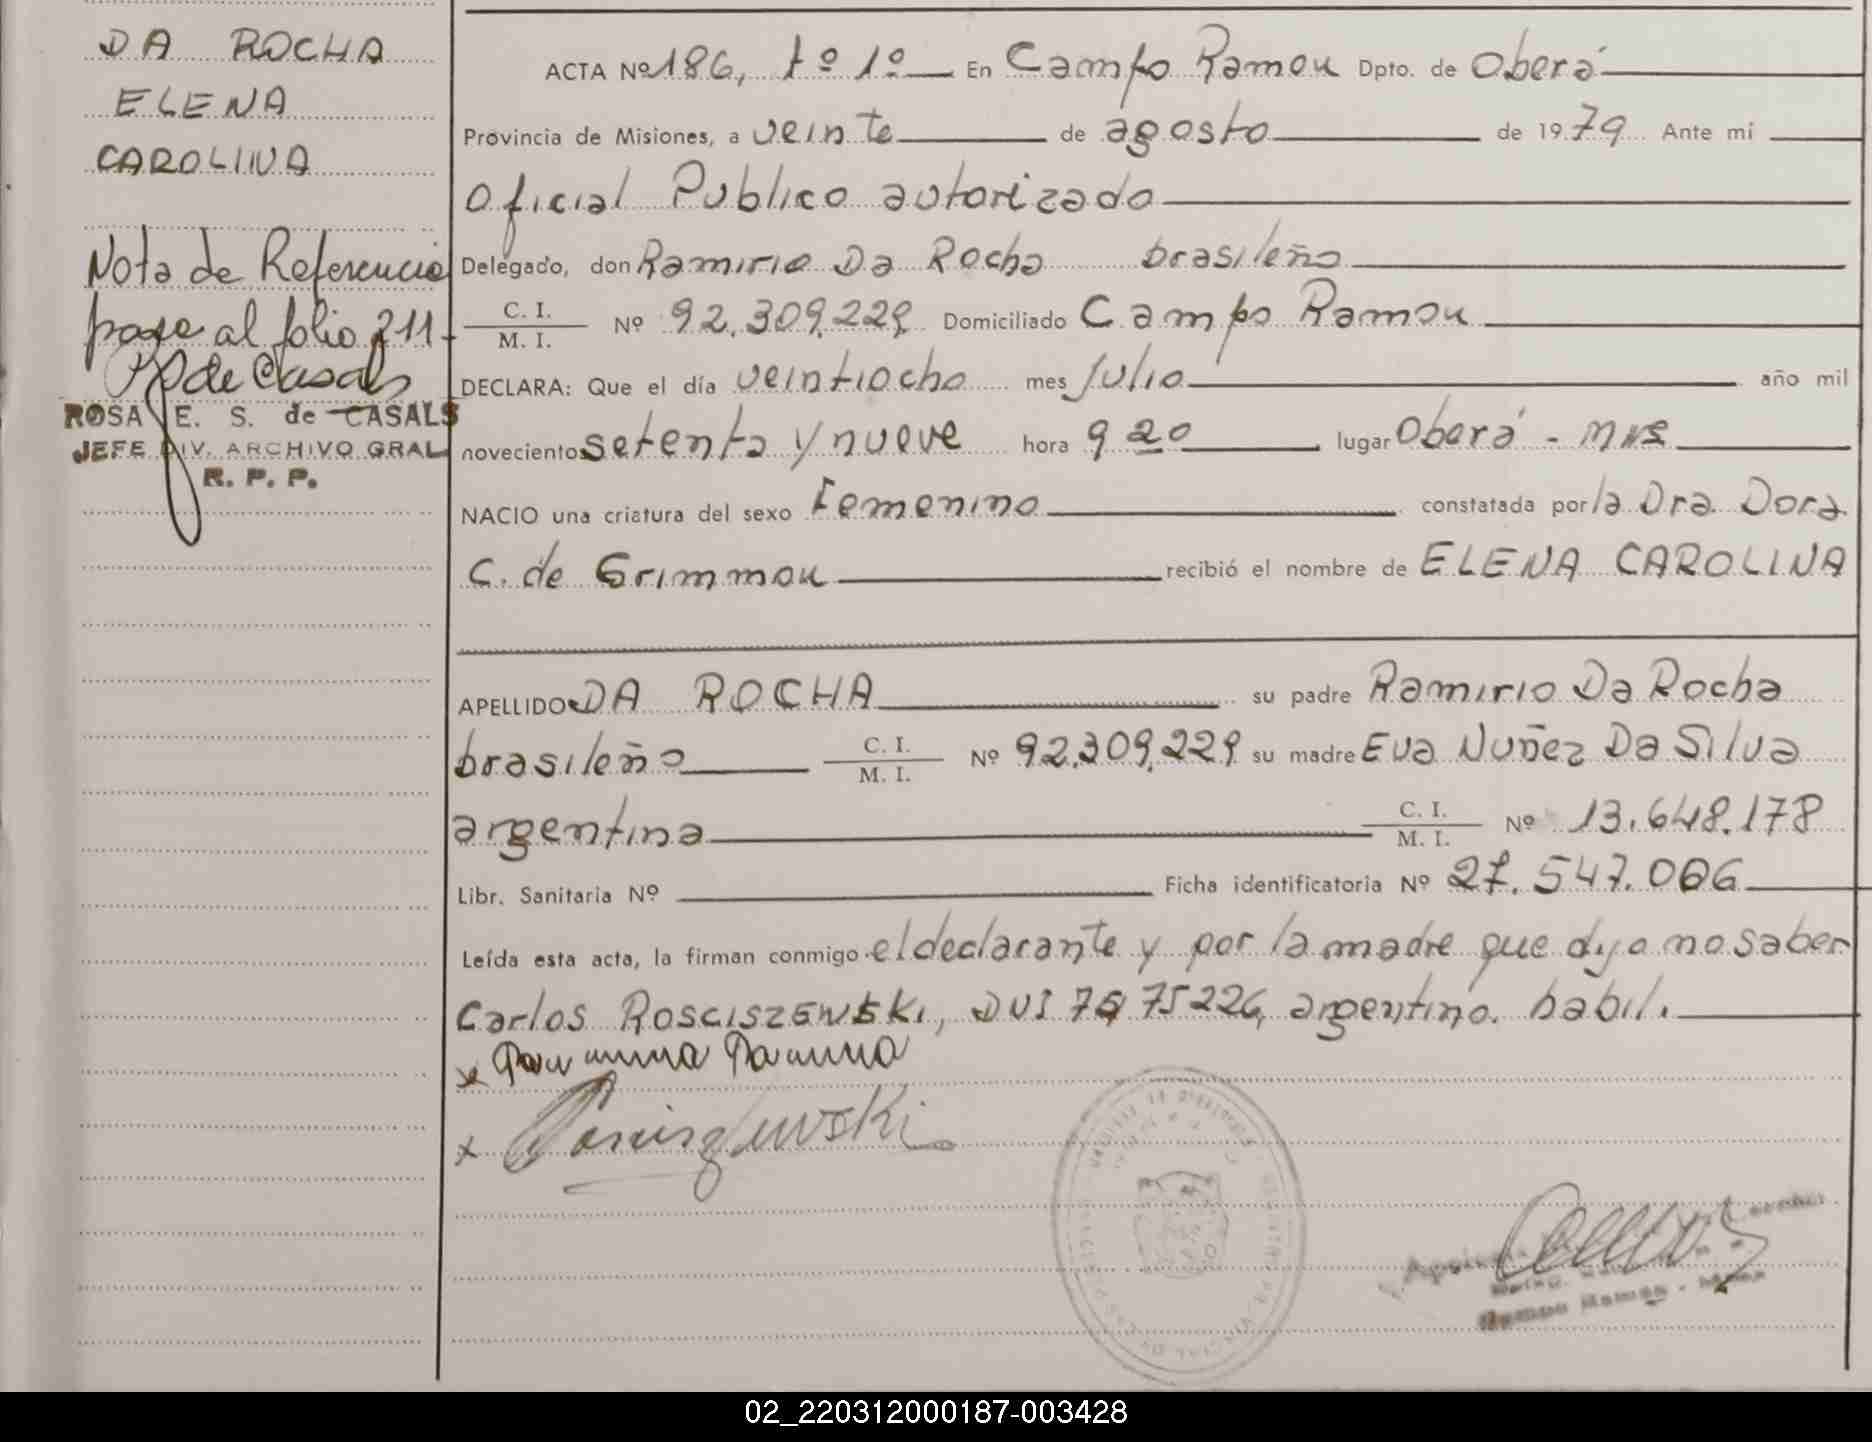 DA ROCHA
ELENA
CAROLINA
Nota de Referencia
pase al folio 211-
R de Casals
ROSA E. S. de CASALS
JEFE DIV. ARCHIVO GRAL
R. P. P.
ACTA Nº 186, tº 1º En Campo Ramon Dpto. de Oberá
Provincia de Misiones, a veinte de agosto de 1979 Ante mí
Oficial Publico autorizado
Delegado, don Ramirio Da Rocha brasileño
C. I. / M. I. Nº 92.309.229 Domiciliado Campo Ramon
DECLARA: Que el día veintiocho mes Julio año mil
noveciento setenta y nueve hora 9 20 lugar Oberá - Mns
NACIO una criatura del sexo Femenino constatada por la Dra. Dora
C. de Grimmon recibió el nombre de ELENA CAROLINA
APELLIDO DA ROCHA su padre Ramirio Da Rocha
brasileño C. I. / M. I. Nº 92.309.229 su madre Eva Nuñez Da Silva
argentina C. I. / M. I. Nº 13.648.178
Libr. Sanitaria Nº Ficha identificatoria Nº 27.547.006
Leída esta acta, la firman conmigo el declarante y por la madre que dijo no saber
Carlos Rosciszewski, DUI 7575226, argentino. habil.
x
x Rosciszewski
Campo Ramón
02_220312000187-003428